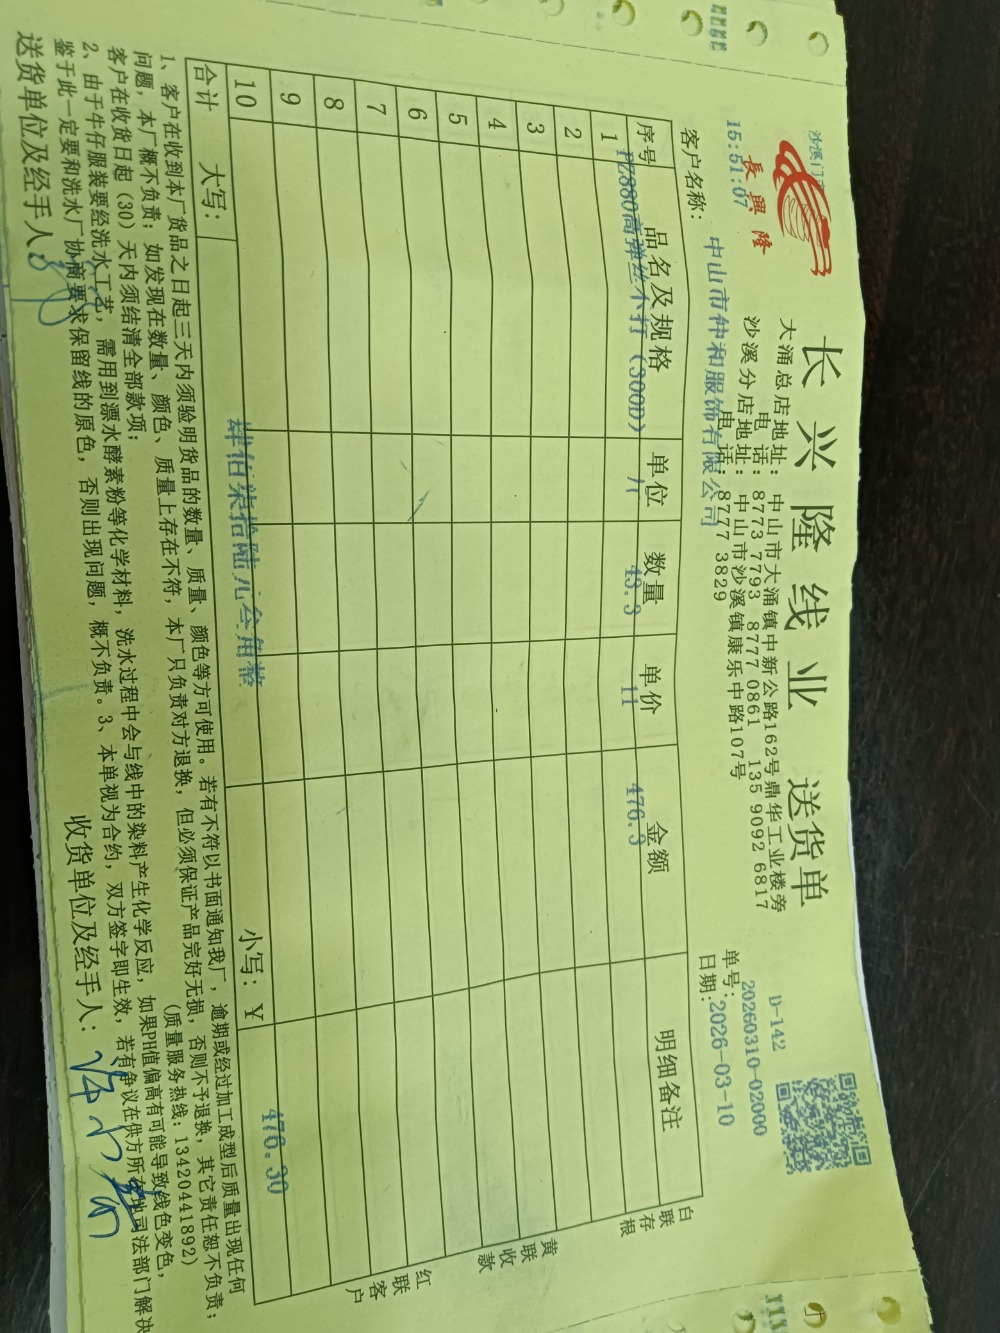 長興隆
15:51:07
长兴隆线业 送货单
大涌总店地址：中山市大涌镇中新公路162号鼎华工业楼旁
电 话：8773 7793 8777 0861 135 9092 6817
沙溪分店地址：中山市沙溪镇康乐中路107号
电 话：8777 3829
D-142
单号：20260310-02000
日期：2026-03-10
客户名称：中山市仲和服饰有限公司
序号 品名及规格 单位 数量 单价 金额 明细备注
1 PZ880高弹丝不打（300D） 43.3 11 476.3
2
3
4
5
6
7
8
9
10
合计 大写：肆佰柒拾陆元叁角整 小写：¥ 476.30
白联存根
黄联收款
红联客户
1、客户在收到本厂货品之日起三天内须验明货品的数量、质量、颜色等方可使用。若有不符以书面通知我厂，逾期或经过加工成型后质量出现任何
问题，本厂概不负责；如发现在数量、颜色、质量上存在不符，本厂只负责对方退换，但必须保证产品完好无损，否则不予退换，其它责任恕不负责；
客户在收货日起（30）天内须结清全部款项；（质量服务热线：13420441892）
2、由于牛仔服装要经洗水工艺，需用到漂水酵素粉等化学材料，洗水过程中会与线中的染料产生化学反应，如果PH值偏高有可能导致线色变色，
鉴于此一定要和洗水厂协商要求保留线的原色，否则出现问题，概不负责。3、本单视为合约，双方签字即生效，若有争议在供方所在地司法部门解决
送货单位及经手人： 收货单位及经手人：